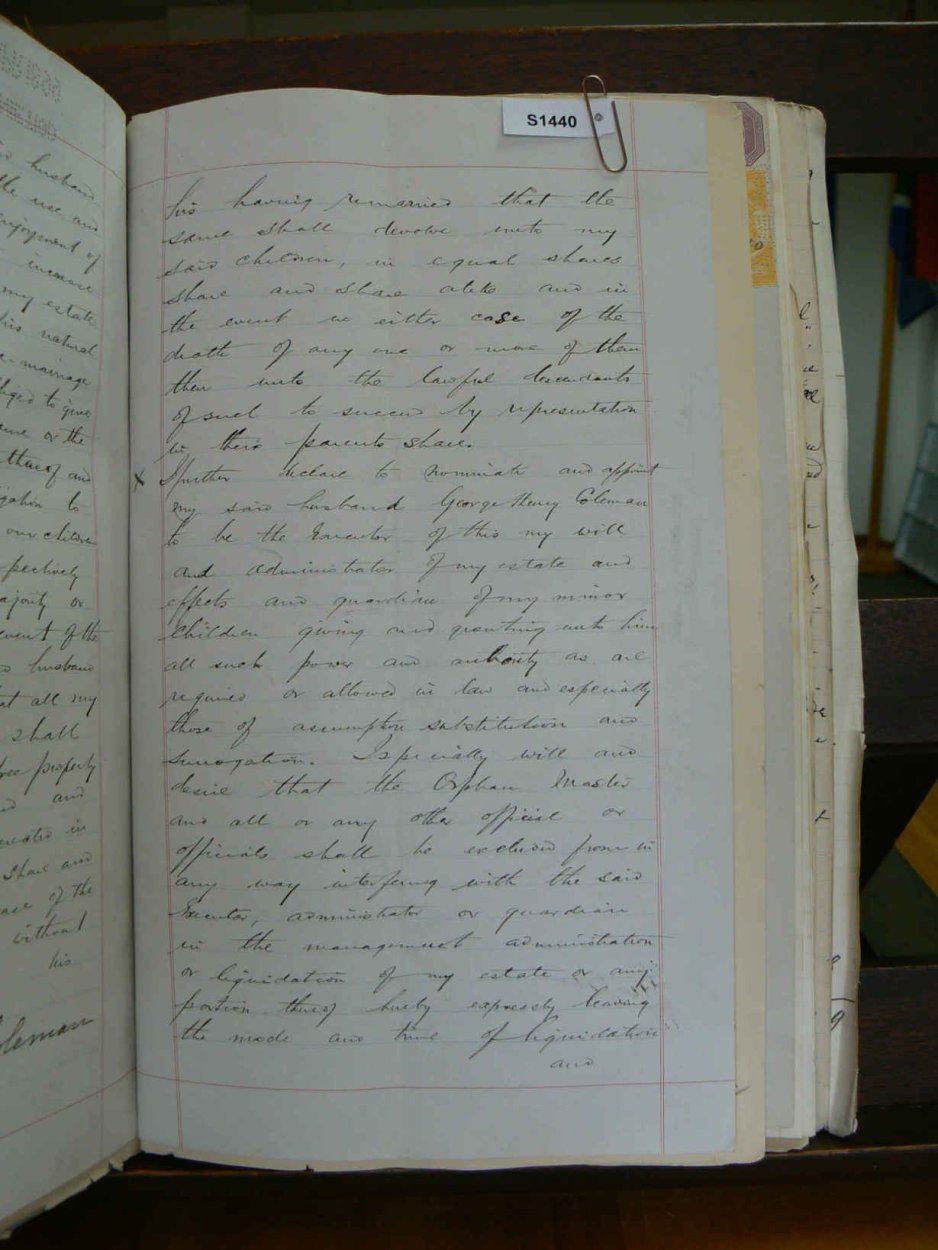 S1440
his having remarried that the
same shall devolve unto my
said children, in equal shares
share and share alike and in
the event in either case of the
death of any one or more of them
then unto the lawful descendants
of such to succeed by representation
in their parents share.
x I further declare to nominate and appoint
my said husband George Henry Coleman
to be the Executor of this my will
and administrator of my estate and
effects and guardian of my minor
children giving and granting unto him
all such power and authority as are
required or allowed in law and especially
those of assumption substitution and
surrogation. Especially will and
desire that the Orphan Master
and all or any other official or
officials shall be excluded from in
any way interfering with the said
Executor, administrator or guardian
in the management administration
or liquidation of my estate or any
portion thereof hereby expressly leaving
the mode and time of liquidation
and
husband
the use and
enjoyment of
income
my estate
his natural
re-marriage
obliged to give
or the
thereof and
to
our children
majority or
event of the
husband
that all my
shall
property
and
in
share and
of the
without
his
Coleman